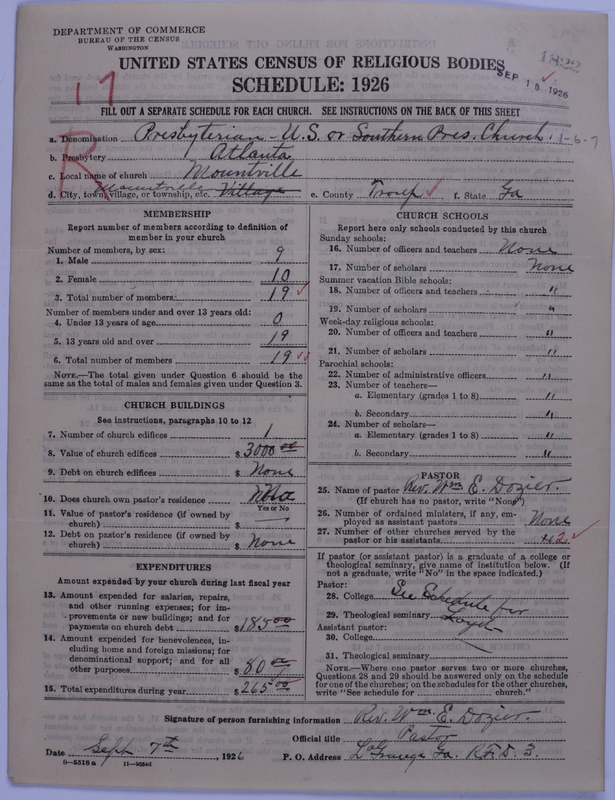 DEPARTMENT OF COMMERCE
BUREAU OF THE CENSUS
WASHINGTON
1822
SEP 10 1926
17
UNITED STATES CENSUS OF RELIGIOUS BODIES
SCHEDULE: 1926
FILL OUT A SEPARATE SCHEDULE FOR EACH CHURCH. SEE INSTRUCTIONS ON THE BACK OF THIS SHEET
R
a. Denomination Presbyterian - U.S. or Southern Pres. Church. 1-6-7
b. Presbytery Atlanta
c. Local name of church Mountville
d. City, town, village, or township, etc. Mountville Village e. County Troup f. State Ga
MEMBERSHIP
Report number of members according to definition of
member in your church
Number of members, by sex:
1. Male 9
2. Female 10
3. Total number of members 19
Number of members under and over 13 years old:
4. Under 13 years of age 0
5. 13 years old and over 19
6. Total number of members 19
NOTE.—The total given under Question 6 should be
same as the total of males and females given under Question 3.
CHURCH BUILDINGS
See instructions, paragraphs 10 to 12
7. Number of church edifices 1
8. Value of church edifices $ 3000.00
9. Debt on church edifices $ None
10. Does church own pastor's residence
Yes or No
11. Value of pastor's residence (if owned by
church) $
12. Debt on pastor's residence (if owned by
church) $ None
EXPENDITURES
Amount expended by your church during last fiscal year
13. Amount expended for salaries, repairs,
and other running expenses; for im-
provements or new buildings; and for
payments on church debt $ 185.00
14. Amount expended for benevolences, in-
cluding home and foreign missions; for
denominational support; and for all
other purposes $ 80.00
15. Total expenditures during year $ 265.00
CHURCH SCHOOLS
Report here only schools conducted by this church
Sunday schools:
16. Number of officers and teachers None
17. Number of scholars None
Summer vacation Bible schools:
18. Number of officers and teachers "
19. Number of scholars "
Week-day religious schools:
20. Number of officers and teachers "
21. Number of scholars "
Parochial schools:
22. Number of administrative officers "
23. Number of teachers—
a. Elementary (grades 1 to 8) "
b. Secondary "
24. Number of scholars—
a. Elementary (grades 1 to 8) "
b. Secondary "
PASTOR
25. Name of pastor Rev. Wm E. Dozier
(If church has no pastor, write "None")
26. Number of ordained ministers, if any, em-
ployed as assistant pastors None
27. Number of other churches served by the
pastor or his assistants 2
If pastor (or assistant pastor) is a graduate of a college or
theological seminary, give name of institution below. (If
not a graduate, write "No" in the space indicated.)
Pastor:
28. College See Schedule for
29. Theological seminary Loyd
Assistant pastor:
30. College
31. Theological seminary
NOTE.—Where one pastor serves two or more churches,
Questions 28 and 29 should be answered only on the schedule
for one of the churches; on the schedules for the other churches,
write "See schedule for church."
Signature of person furnishing information Rev. Wm E. Dozier.
Official title Pastor
Date Sept 7th, 1926 P. O. Address LaGrange Ga. R.F.D. 3.
8—5518 a 11—90544